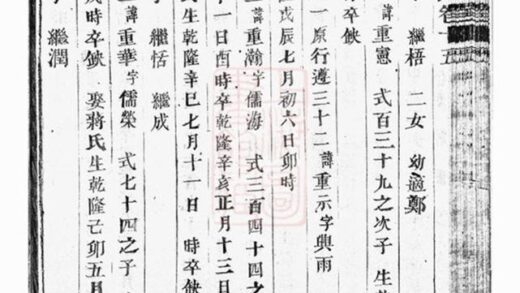 卷十五
繼梧 二女 幼適鄭
諱重憲 式百三十九之次子 生
卒缺
一原行遵三十二諱重示字興雨
戊辰七月初六日卯時
諱重瀚字儒海 式三百四十四之
十一日酉時卒乾隆辛亥正月十三日
氏生乾隆辛巳七月十一日 時卒缺
繼恬 繼成
諱重華字儒榮 式七十四之子
戌時卒缺 娶蔣氏生乾隆己卯五月
繼潤